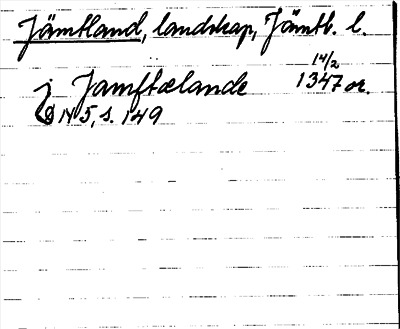 Jämtland, landskap, Jämtl. l.
j Jamftælande 14/2 1347 or.
N 5, s. 149